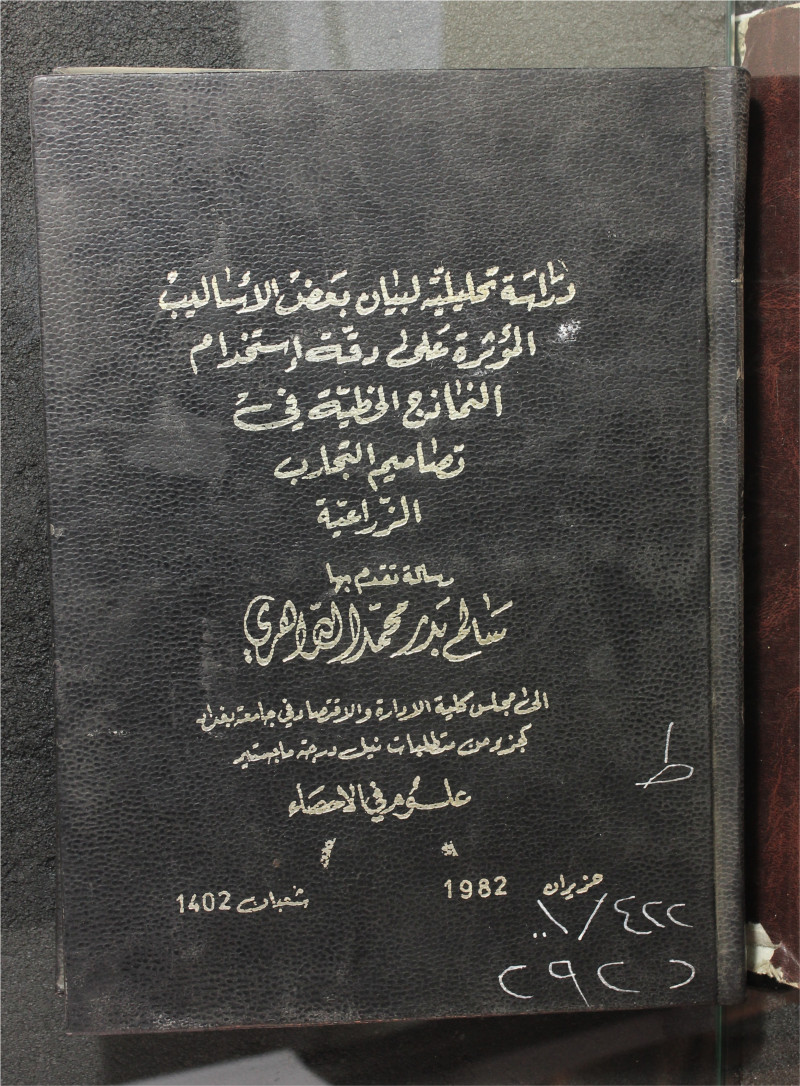 دراسة تحليلية لبيان بعض الأساليب
المؤثرة على دقة إستخدام
النماذج الخطية في
تصاميم التجارب
الزراعية
رسالة تقدم بها
سالم بدر محمد الداهري
الى مجلس كلية الادارة والاقتصاد في جامعة بغداد
كجزء من متطلبات نيل درجة ماجستير
علوم في الاحصاء
حزيران 1982
شعبان 1402
ط